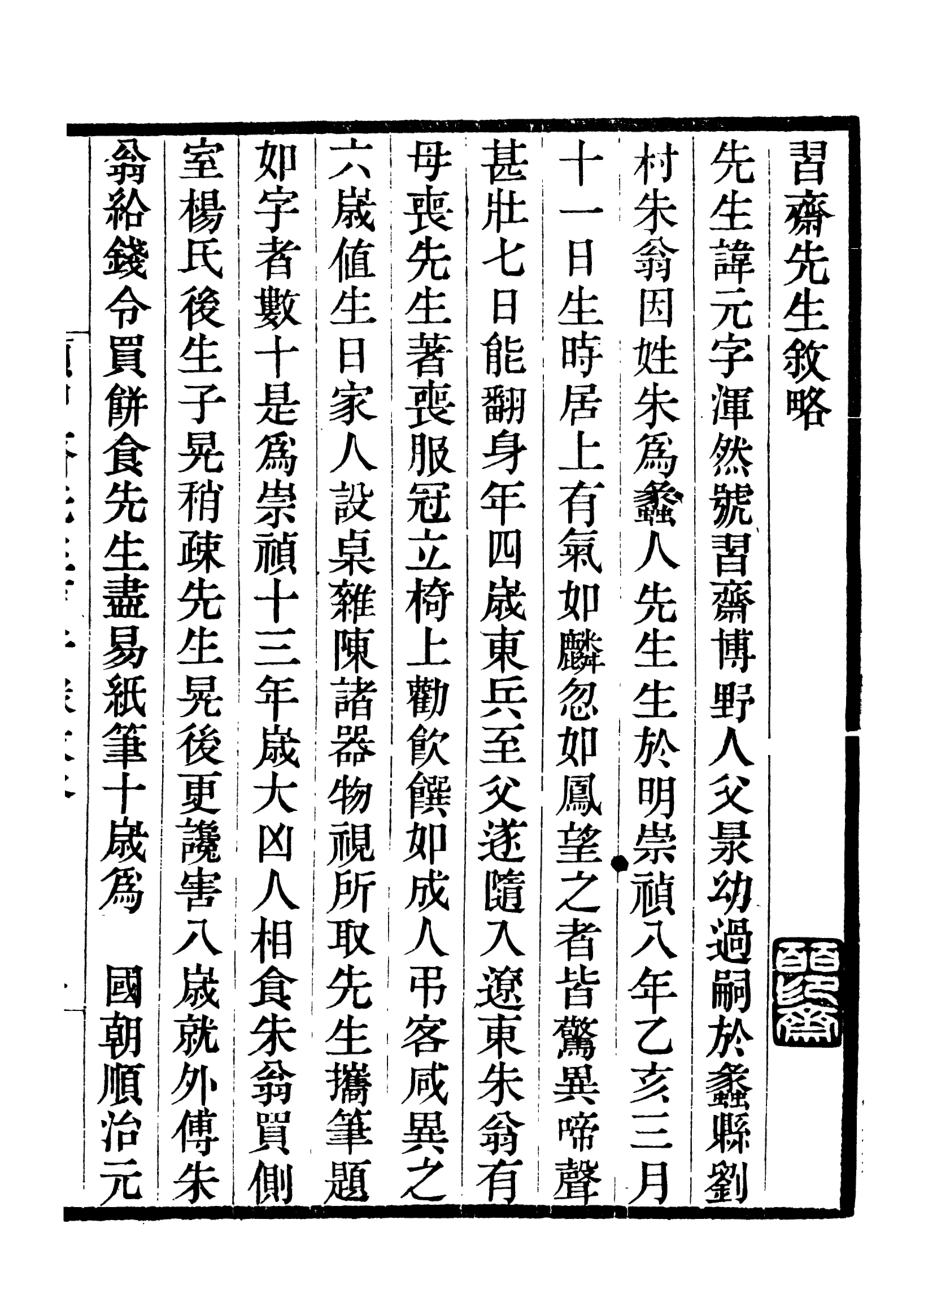 習齋先生敘略
先生諱元字渾然號習齋博野人父㫤幼過嗣於蠡縣劉
村朱翁因姓朱爲蠡人先生生於明崇禎八年乙亥三月
十一日生時居上有氣如麟忽如鳳望之者皆驚異啼聲
甚壯七日能翻身年四歲東兵至父遂隨入遼東朱翁有
母喪先生著喪服冠立椅上勸飮饌如成人弔客咸異之
六歲値生日家人設桌雜陳諸器物視所取先生攜筆題
如字者數十是爲崇禎十三年歲大凶人相食朱翁買側
室楊氏後生子晃稍疎先生晃後更讒害八歲就外傅朱
翁給錢令買餅食先生盡易紙筆十歲爲　國朝順治元